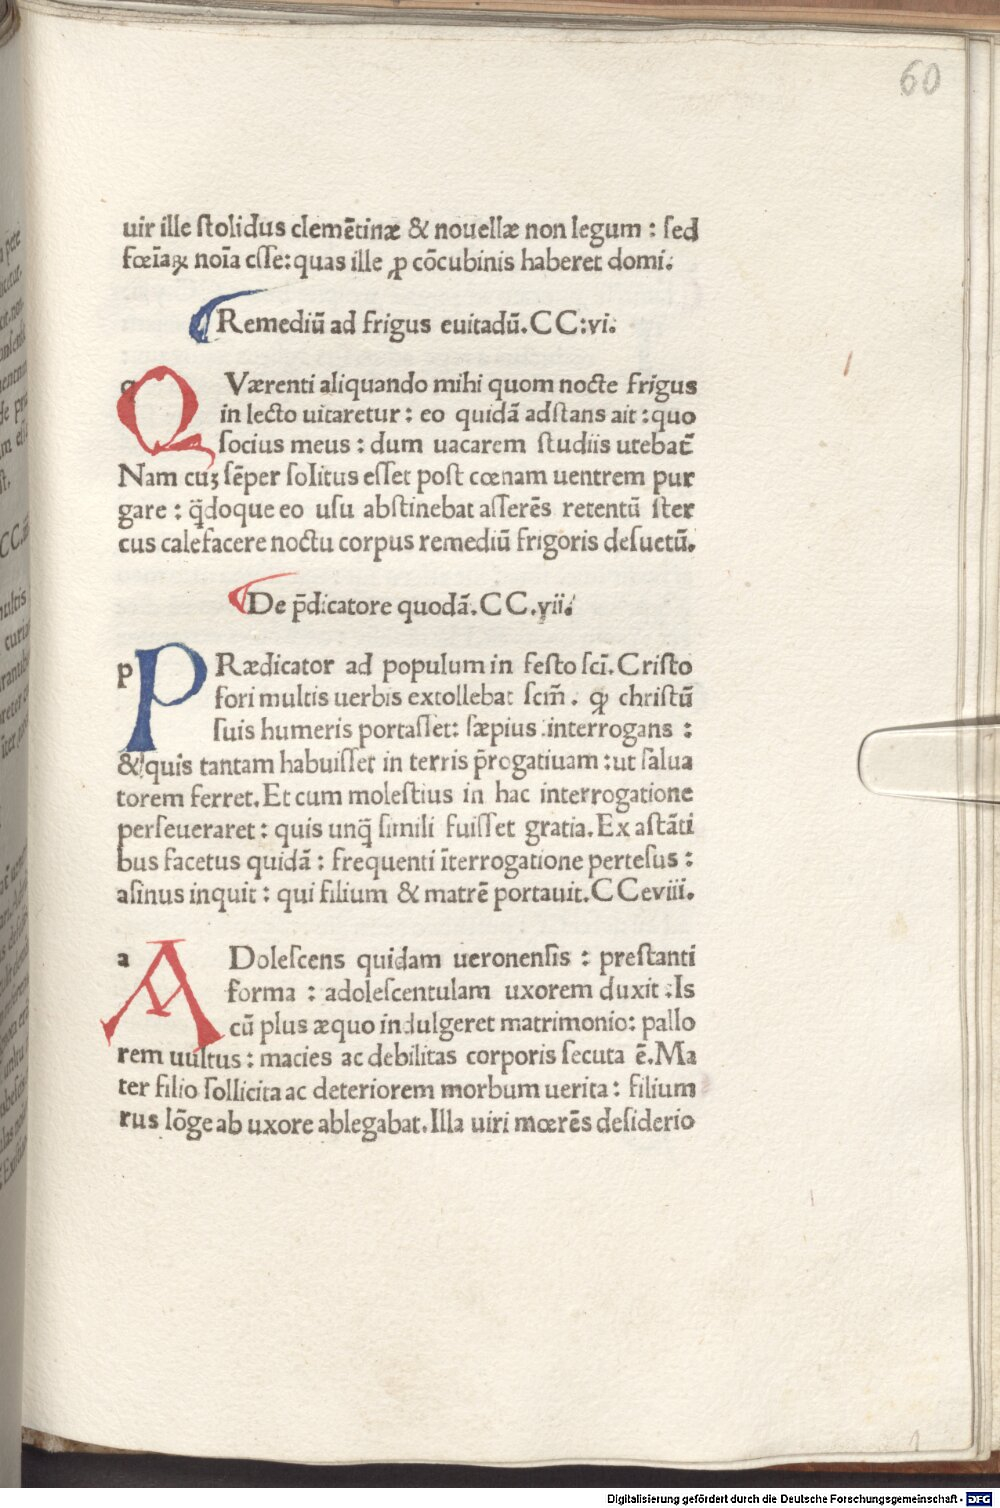 60
uir ille ſtolidus clemētinæ & nouellæ non legum : ſed
fœīaꝝ noīa eſſe: quas ille ꝓ cōcubinis haberet domi.
Remediū ad frigus euitadū. CC:vi.
q QVærenti aliquando mihi quom nocte frigus
in lecto uitaretur : eo quidā adſtans ait : quo
ſocius meus : dum uacarem ſtudiis utebat̄
Nam cuꝫ ſēper ſolitus eſſet poſt cœnam uentrem pur
gare : q̄doque eo uſu abſtinebat aſſerēs retentū ſter
cus calefacere noctu corpus remediū frigoris deſuetū.
De p̄dicatore quodā. CC.vii.
p PRædicator ad populum in feſto ſcī. Criſto
fori multis uerbis extollebat ſcm̄. ꝙ chriſtū
ſuis humeris portaſſet: ſæpius interrogans :
& quis tantam habuiſſet in terris p̄rogatiuam : ut ſalua
torem ferret. Et cum moleſtius in hac interrogatione
perſeueraret : quis unq̄ ſimili fuiſſet gratia. Ex aſtāti
bus facetus quidā : frequenti īterrogatione perteſus :
aſinus inquit : qui filium & matrē portauit. CCeviii.
a ADoleſcens quidam ueronenſis : preſtanti
forma : adoleſcentulam uxorem duxit : Is
cū plus æquo indulgeret matrimonio: pallo
rem uultus : macies ac debilitas corporis ſecuta ē. Ma
ter filio ſollicita ac deteriorem morbum uerita : filium
rus lōge ab uxore ablegabat. Illa uiri mœrēs deſiderio
1
Digitalisierung gefördert durch die Deutsche Forschungsgemeinschaft - DFG